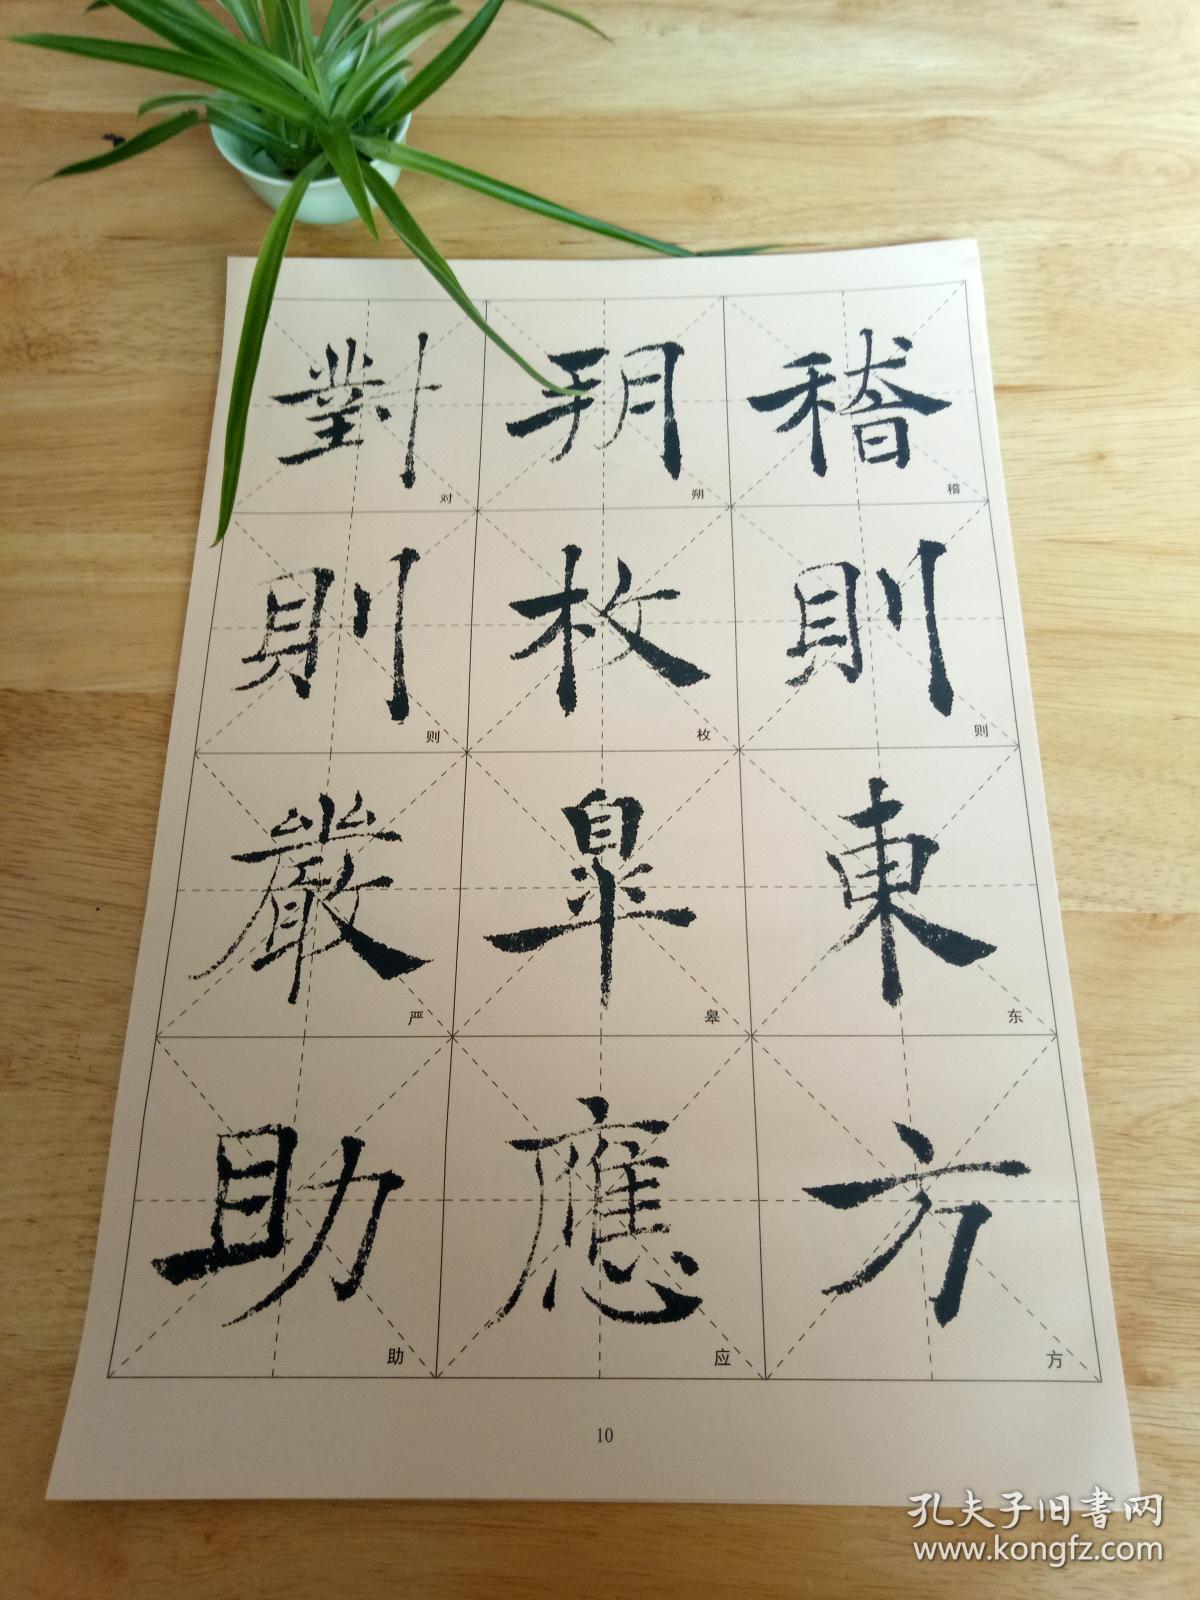 稽則東方
朔枚皋應
對則嚴助
稽
则
东
方
朔
枚
皋
应
对
则
严
助
10
孔夫子旧書网
www.kongfz.com